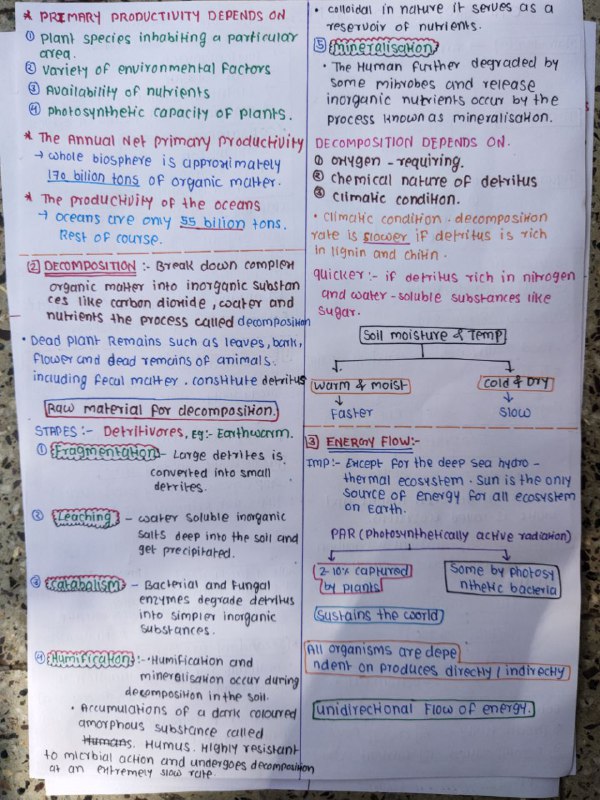 * PRIMARY PRODUCTIVITY DEPENDS ON
① Plant species inhabiting a particular
area.
② Variety of environmental factors
③ Availability of nutrients
④ Photosynthetic capacity of plants.
* The Annual Net Primary Productivity
→ whole biosphere is approximately
170 bilion tons of organic matter.
* The productivity of the oceans
→ oceans are only 55 billion tons.
Rest of course.
② DECOMPOSITION :- Break down complex
organic matter into inorganic substan
ces like carbon dioxide, water and
nutrients the process called decomposition
• Dead plant Remains such as leaves, bark,
flower and dead remains of animals.
including fecal matter. constitute detritus
Raw material for decomposition.
STAPES :- Detritivores, Eg:- Earthworm.
① Fragmentation - Large detrites is
converted into small
detrites.
② Leaching - water soluble inorganic
salts deep into the soil and
get precipitated.
③ Catabolism - Bacterial and Fungal
enzymes degrade detritus
into simpler inorganic
substances.
④ Humification :- • Humification and
mineralisation occur during
decomposition in the soil.
• Accumulations of a dark coloured
amorphous substance called
Humans. Humus. Highly resistant
to microbial action and undergoes decomposition
at an extremely slow rate
• colloidal in nature it serves as a
reservoir of nutrients.
⑤ mineralisation
• The Human further degraded by
some mibrobes and release
inorganic nutrients occur by the
process known as mineralisation.
DECOMPOSITION DEPENDS ON.
① Oxygen - requiring.
② Chemical nature of detritus
③ Climatic condition.
• Climatic condition. decomposition
rate is slower if detritus is rich
in lignin and chitin.
quicker :- if detritus rich in nitrogen
and water-soluble substances like
sugar.
Soil moisture & Temp
warm & moist
Cold & Dry
Faster
Slow
③ ENERGY FLOW:-
Imp:- Except for the deep sea hydro -
thermal ecosystem. Sun is the only
source of energy for all ecosystem
on Earth.
PAR (Photosynthetically active radiation)
2-10% captured
by plants
Some by photosy
nthetic bacteria
Sustains the world
All organisms are depe
ndent on produces directly / indirectly
unidirectional Flow of energy.